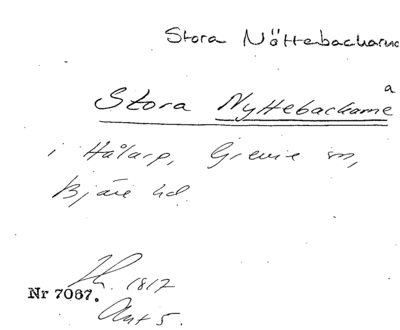 Stora Nöttebackarna
a
Stora Nyttebackarne
i Hålarp, Grevie sn,
Bjäre hd.
1817
Nr 7067.
Akt 5.